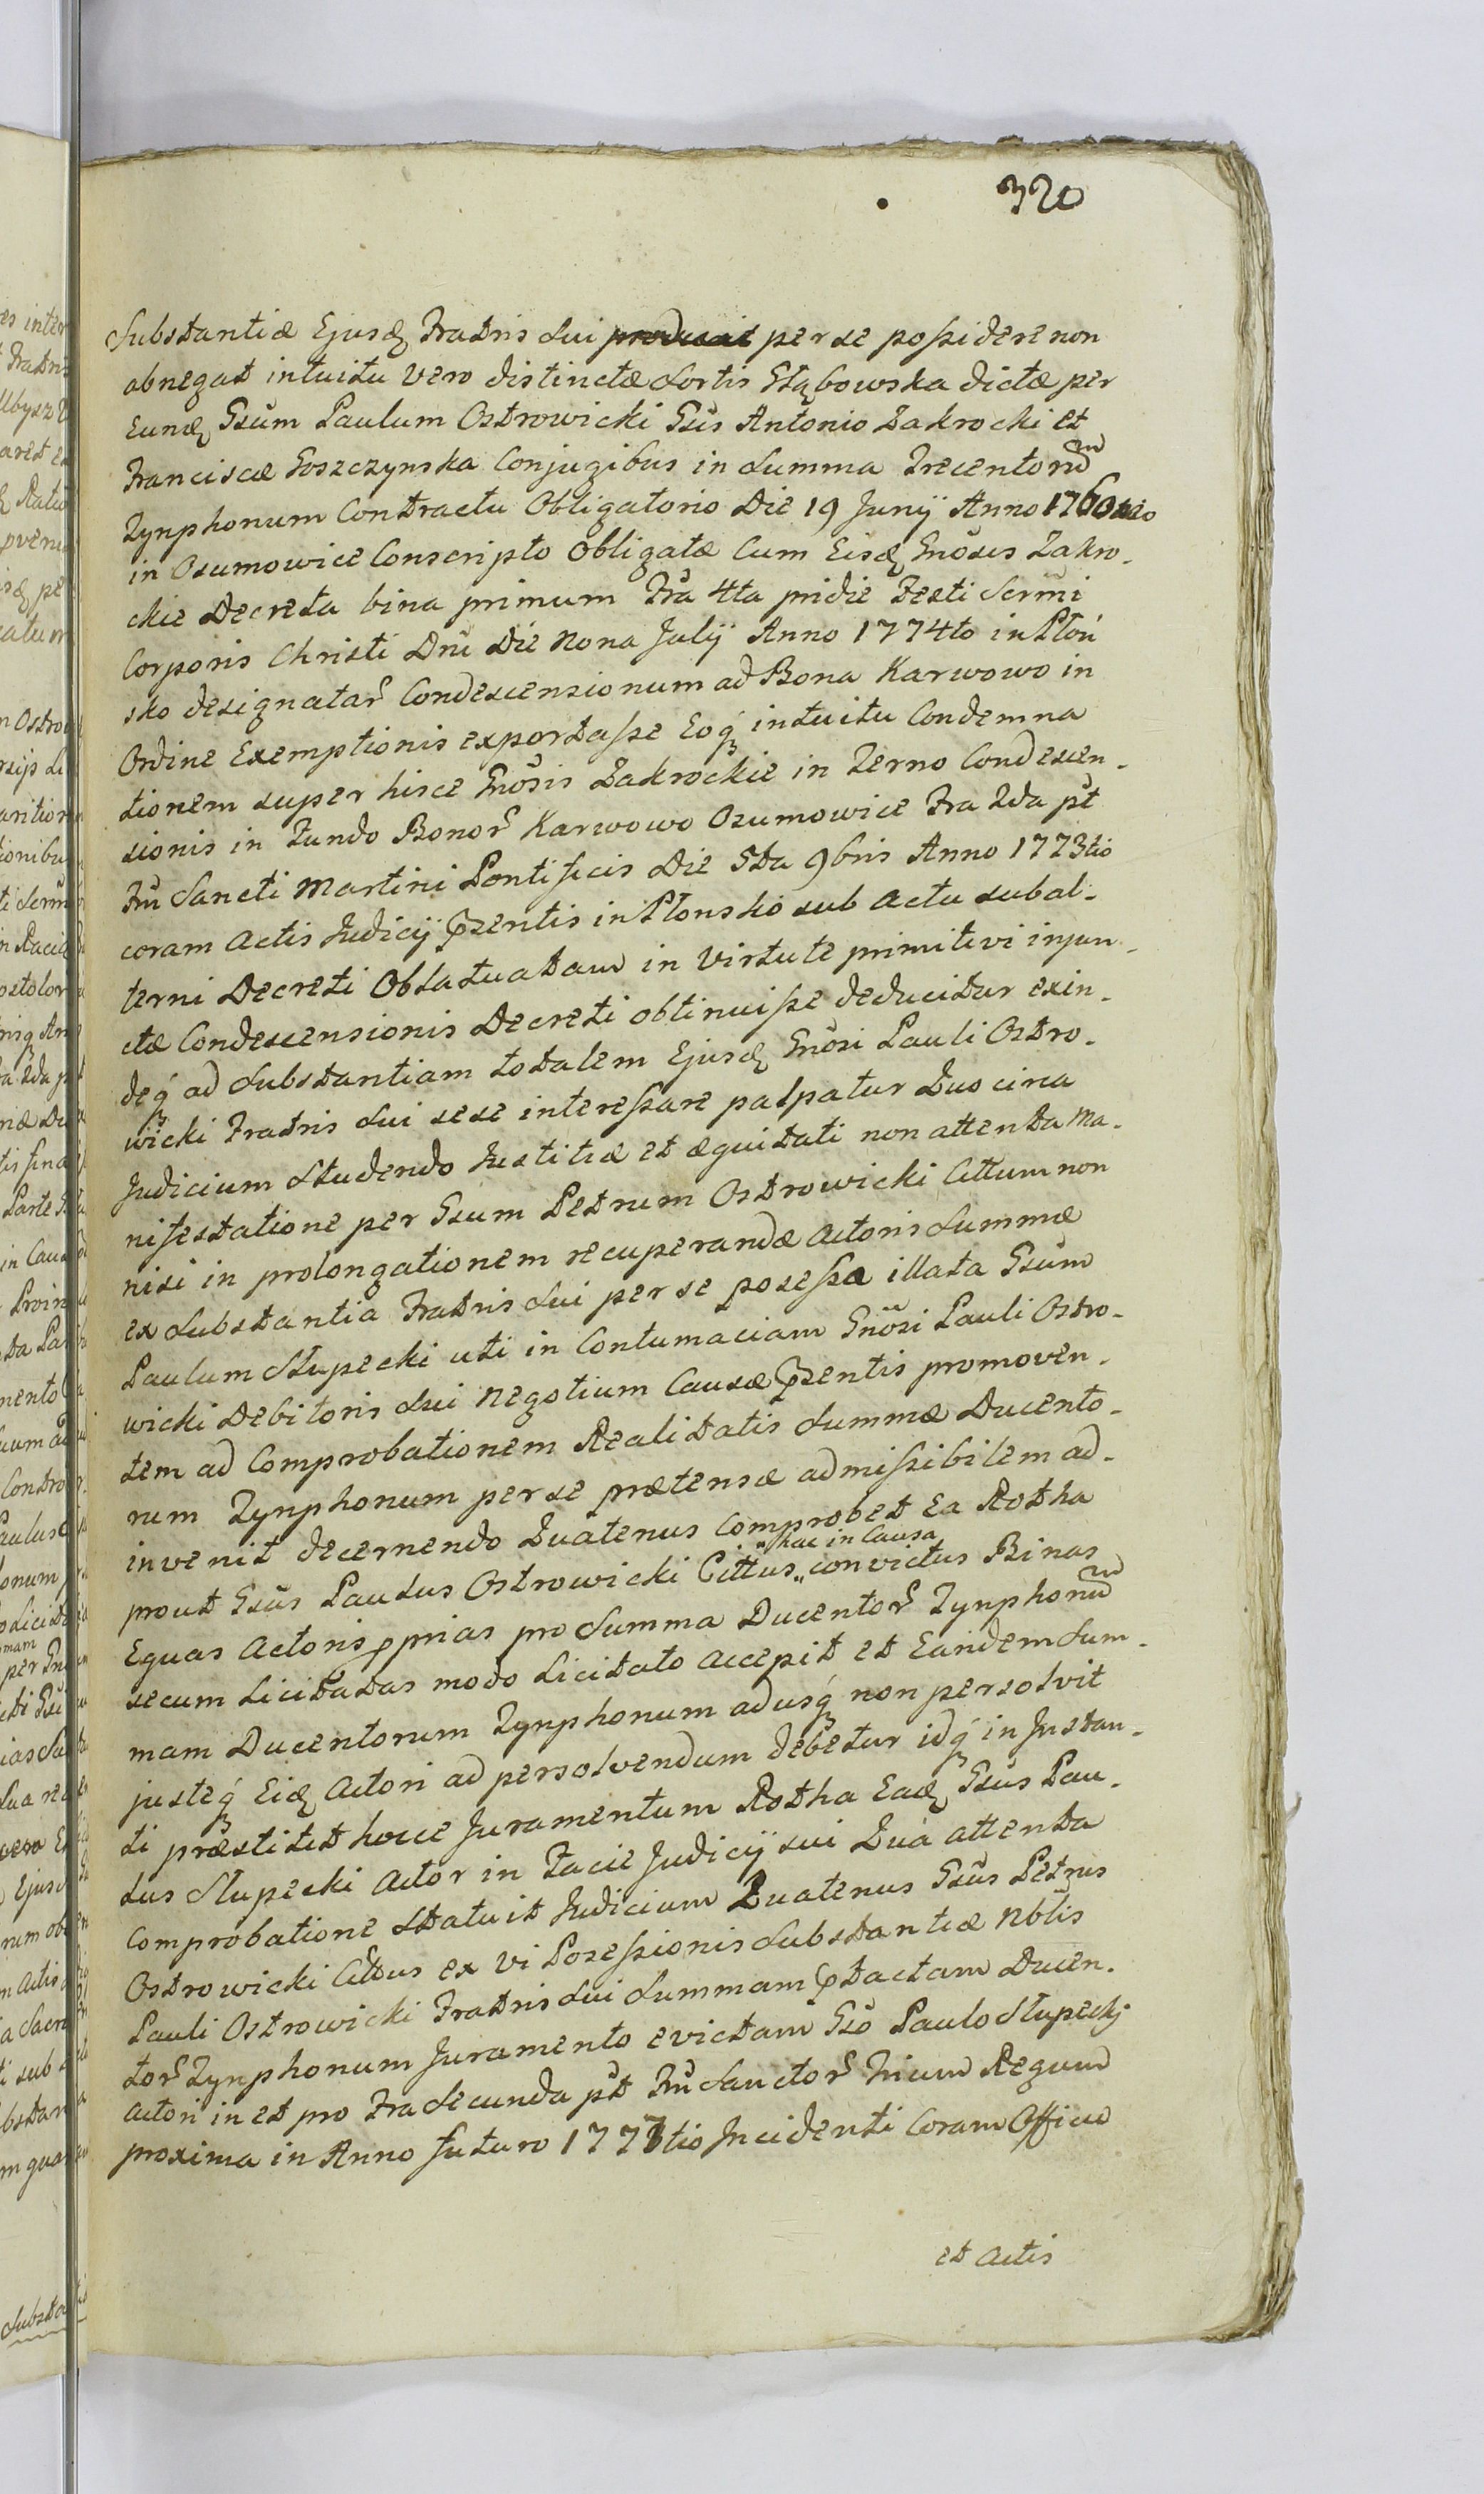 320
Substantiæ Ejusd Fratris Sui per se possidere non
abnegat intuitu vero distinctæ Sortis Głąbowska dictæ per
Eund Gsum Paulum Ostrowicki Gsis Antonio Zakrocki et
Franciscæ Goszczynska Conjugibus in Summa Trecentorum
Tynphonum Contractu Obligatorio Die 19 Junÿ Anno 1760
in Osumowice Conscripto Obligatæ Cum Eisd Gnosis Zakro-
ckie Decreta bina primum Fra 4ta pridie Festi Scrmi
Corporis Christi Dni Die Nona Julÿ Anno 1774to in Płoń
sko designatar Condescensionum ad Bona Karwowo in
Ordine Exemptionis exportasse Eoq intuitu Condemna
tionem super hisce Gnosis Zakrockie in Termo Condescen-
sionis in Fundo Bonor Karwowo Osumowice Fra 2da pt
Fm Sancti Martini Pontificis Die 5ta 9bris Anno 1773tio
coram Actis Judicÿ Pzentis in Płonsko sub Actu subal-
terni Decreti Oblatuatam in Virtute primitivi injun-
ctæ Condescensionis Decreti obtinuisse deducitur exin-
deq ad Substantiam totalem Ejusd Gnosi Pauli Ostro-
wicki Fratris Sui sese interessare palpatur Quo circa
Judicium Studendo Justitiæ et æquitati non attenta Ma-
nifestatione per Gsum Petrum Ostrowicki Cittum non
nisi in prolongationem recuperandæ Actoris Summæ
ex Substantia Fratris Sui per se posessa illata Gsum
Paulum Słupecki uti in Contumaciam Gnosi Pauli Ostro-
wicki Debitoris Sui Negotium Causæ Pzentis promoven-
tem ad Comprobationem Realitatis Summæ Ducento-
rum Tynphonum per se prætensæ admissibilem ad-
invenit decernendo Quatenus Comprobet Ea Rotha
" hac in Causa
prout Gsus Paulus Ostrowicki Cittus " convictus Binas
Equas Actoris pprias pro Summa Ducentor Tynphonum
secum Licitatas modo Licitato accepit et Eandem Sum-
mam Ducentorum Tynphonum adusq non persolvit
justeq Eid Actori ad persolvendum debetur idq in Instan-
ti præstitit hocce Juramentum Rotha Ead Gsus Pau-
lus Słupecki Actor in Facie Judicÿ sui Qua attenta
Comprobatione Statuit Judicium Quatenus Gsus Petrus
Ostrowicki Cittus ex vi Posessionis Substantiæ Nbtis
Pauli Ostrowicki Fratris Sui Summam Ptactam Ducen-
tor Tynphonum Juramento evictam Gso Paulo Słupecki
Actori in et pro Fra Secunda pt Fm Sanctor Trium Regum
proxima in Anno futuro 1777tio Incidenti Coram Officio
et Actis